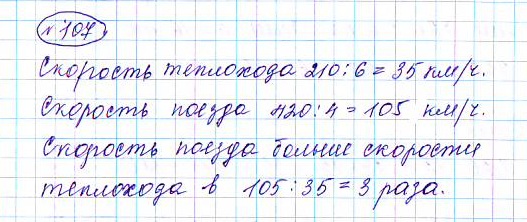 №107
Скорость теплохода 210:6=35 км/ч.
Скорость поезда 420:4=105 км/ч.
Скорость поезда больше скорости
теплохода в 105:35=3 раза.